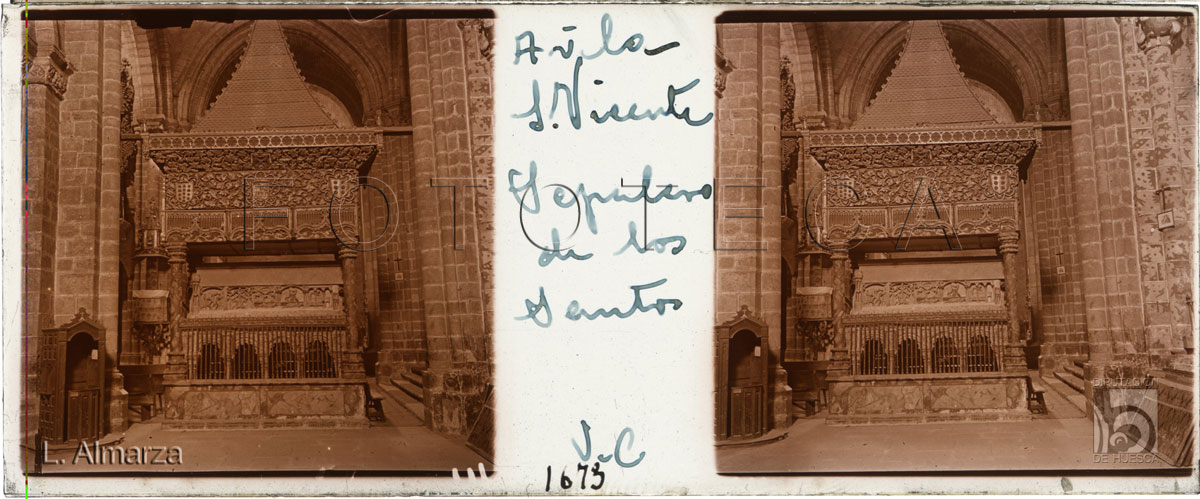 Avila
S. Vicente
Sepulcro
de los
Santos
V. C
1673
FOTOTECA
L. Almarza
DIPUTACIÓN
DE HUESCA